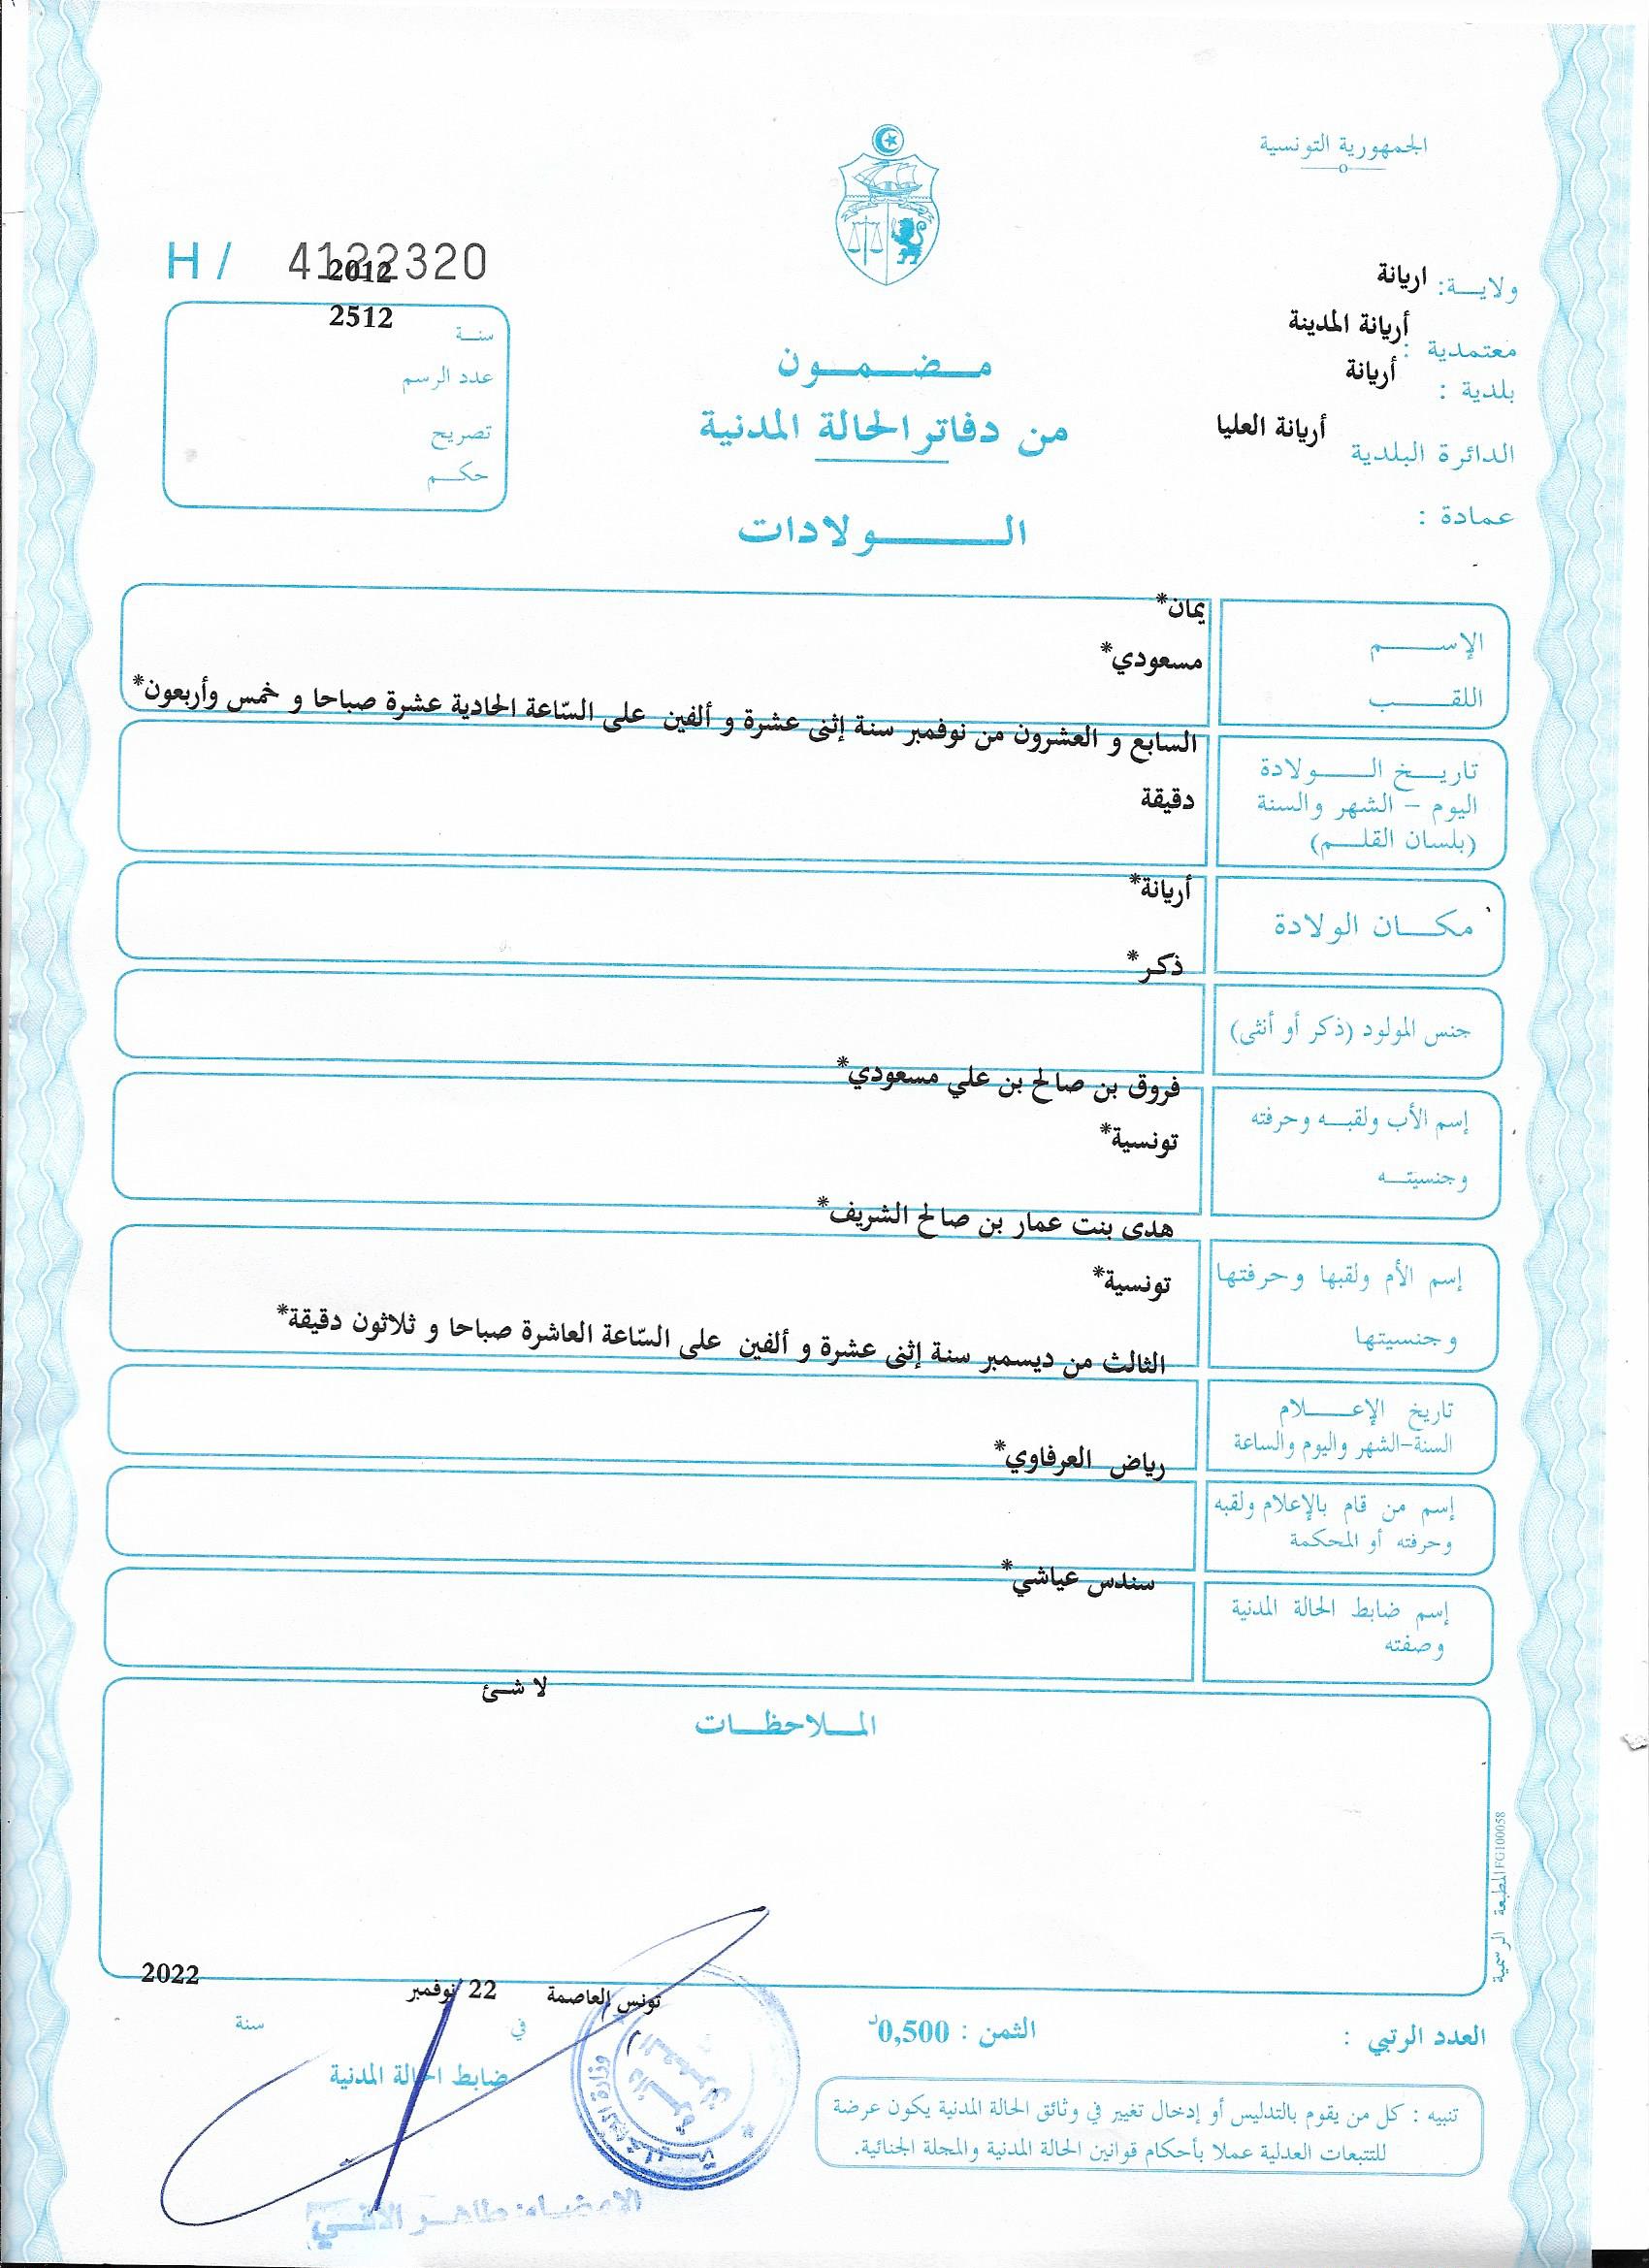 الجمهورية التونسية
ولايـــة: اريانة
معتمدية : أريانة المدينة
بلدية : أريانة
الدائرة البلدية أريانة العليا
عمادة :
H / 4122320
2012
2512
سنــة
عدد الرسم
تصريح
حكــم
مـــضـــمـــون
من دفاتر الحالة المدنية
الـــــولادات
الإســـــم يمان*
اللقـــــب مسعودي*
تاريـــخ الـــــولادة
اليوم - الشهر والسنة
(بلسان القلــم)
السابع و العشرون من نوفمبر سنة إثنى عشرة و ألفين على السّاعة الحادية عشرة صباحا و خمس وأربعون*
دقيقة
مكـــان الولادة أريانة*
جنس المولود (ذكر أو أنثى) ذكر*
إسم الأب ولقبــه وحرفته
وجنسيتــه
فروق بن صالح بن علي مسعودي*
تونسية*
إسم الأم ولقبها وحرفتها
وجنسيتها
هدى بنت عمار بن صالح الشريف*
تونسية*
تاريخ الإعـــــلام
السنة-الشهر واليوم والساعة
الثالث من ديسمبر سنة إثنى عشرة و ألفين على السّاعة العاشرة صباحا و ثلاثون دقيقة*
إسم من قام بالإعلام ولقبه
وحرفته أو المحكمة
رياض العرفاوي*
إسم ضابط الحالة المدنية
وصفته
سندس عياشي*
لا شئ
المـــلاحظـــات
المطبعة الرسمية FG100058
تونس العاصمة 22 نوفمبر 2022
في سنة
ضابط الحالة المدنية
العدد الرتبي :
الثمن : 0,500د
تنبيه : كل من يقوم بالتدليس أو إدخال تغيير في وثائق الحالة المدنية يكون عرضة
للتتبعات العدلية عملا بأحكام قوانين الحالة المدنية والمجلة الجنائية.